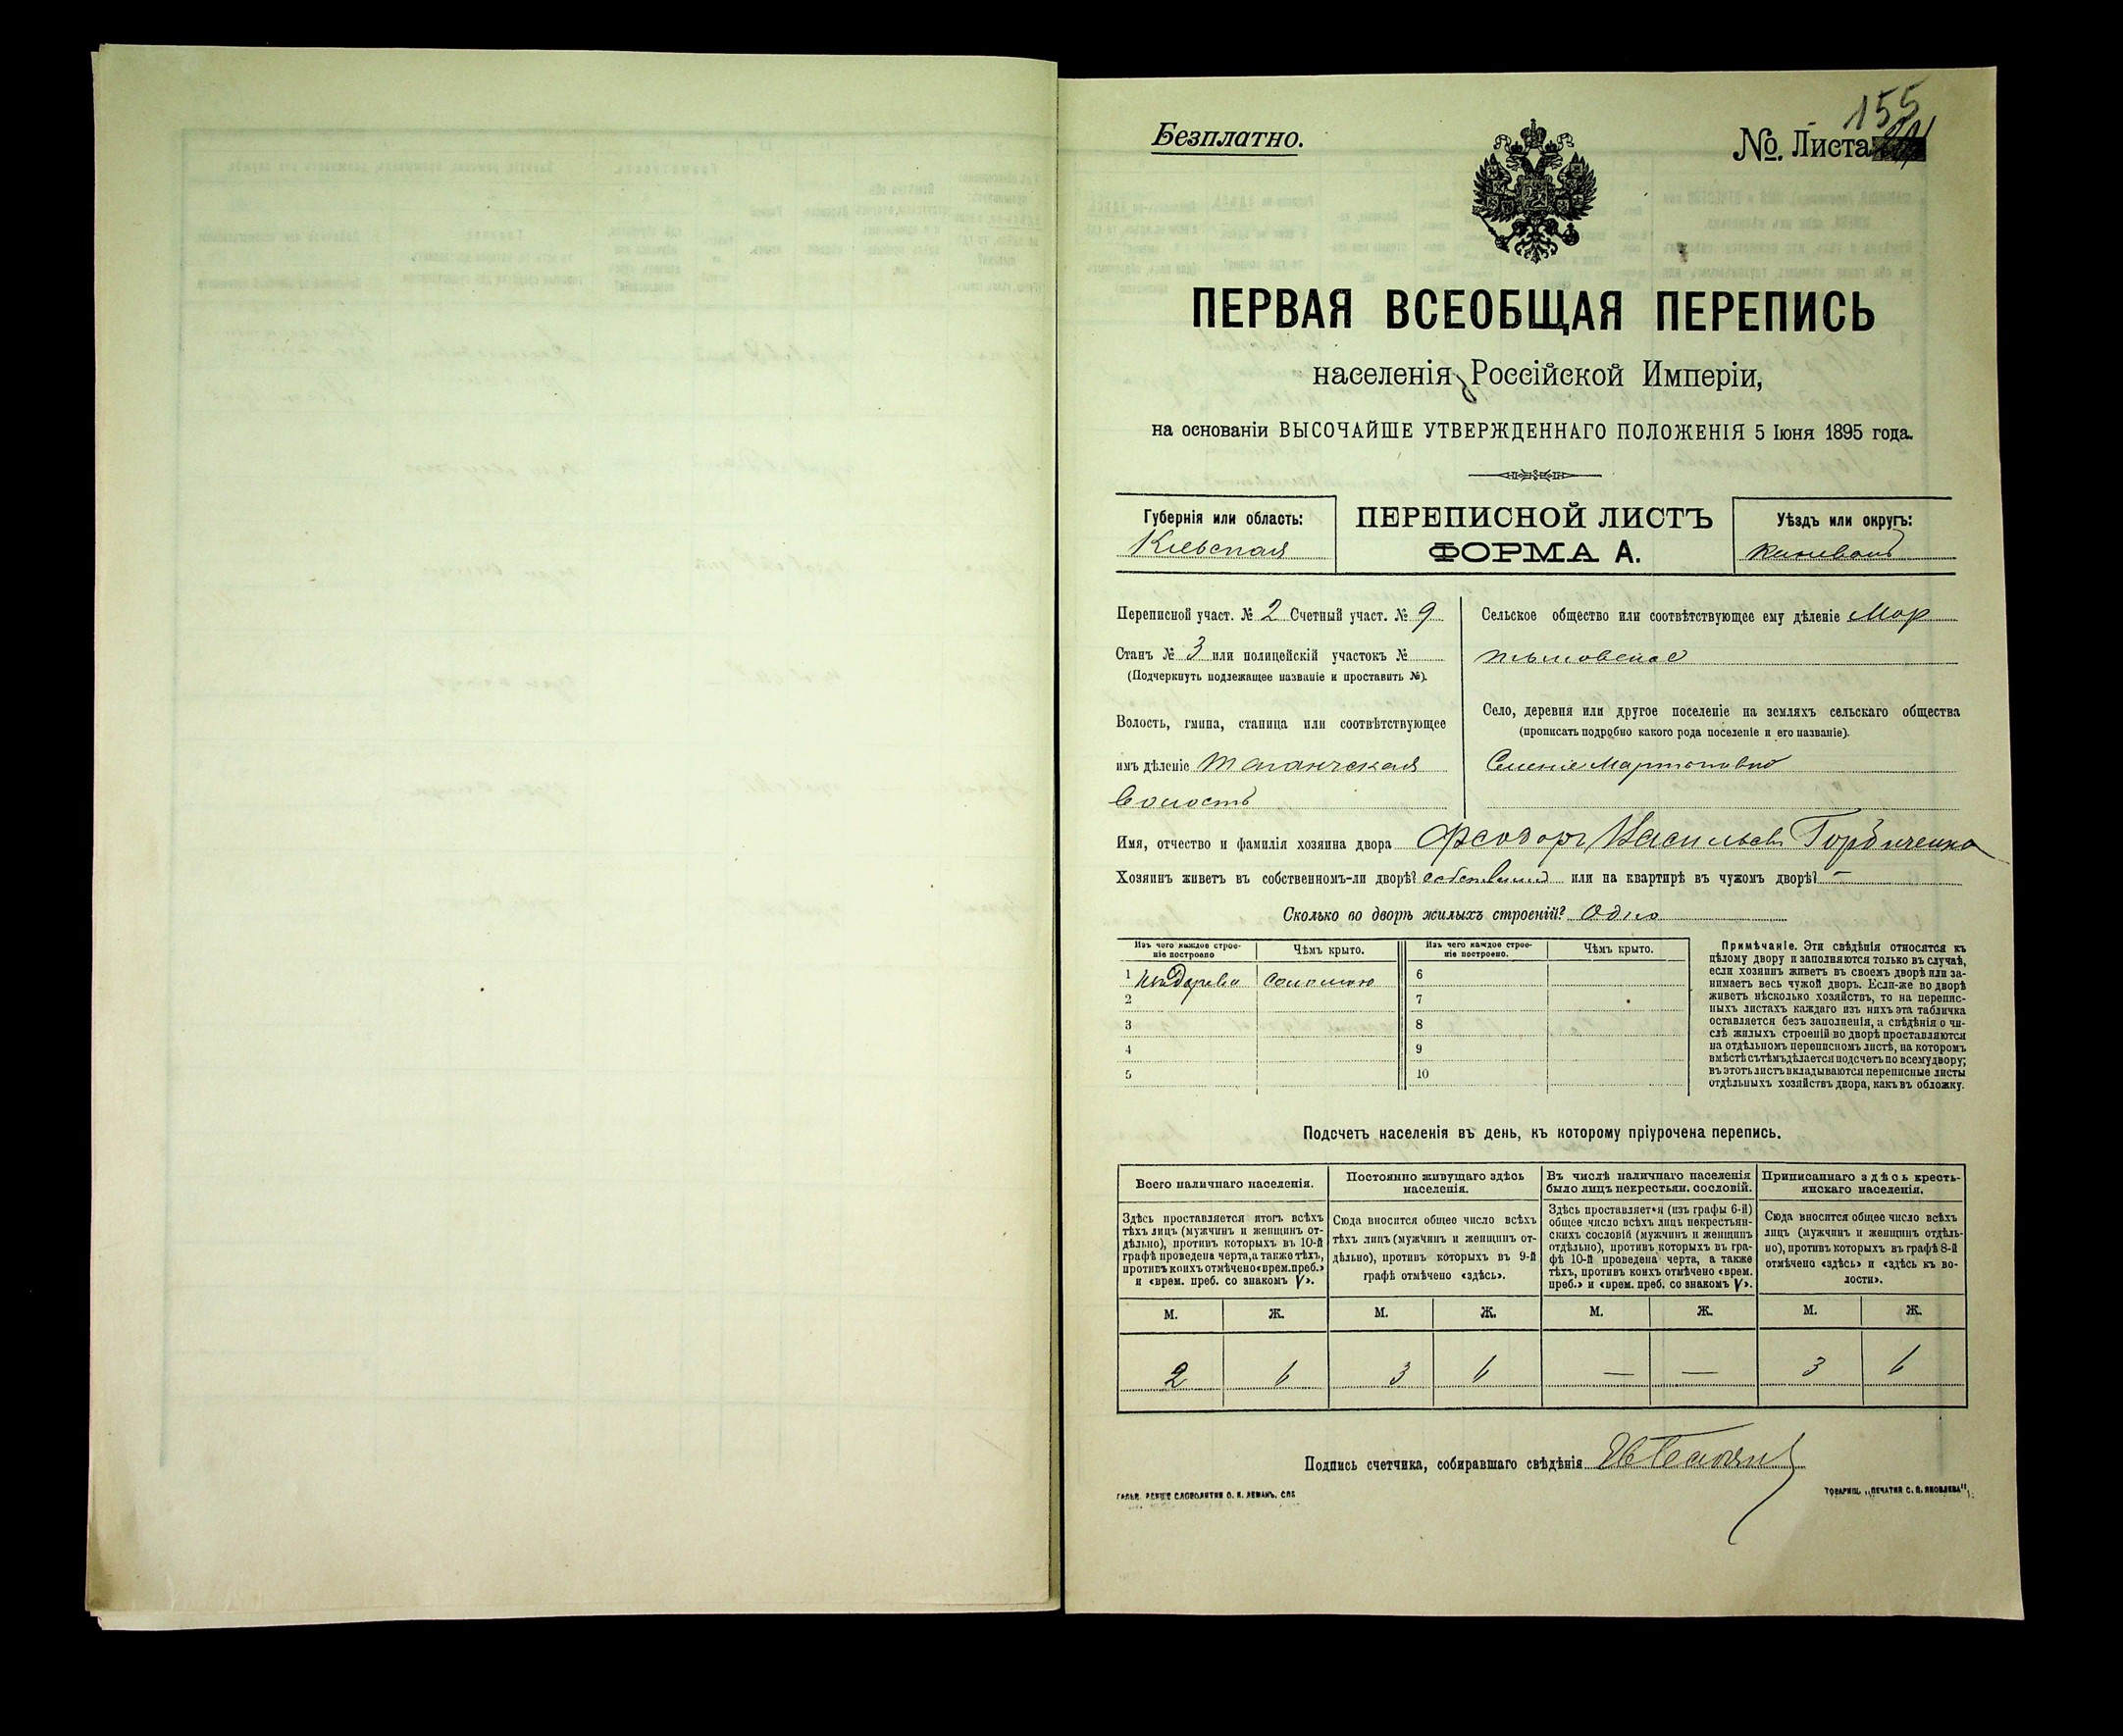 Безплатно.
155
№. Листа
ПЕРВАЯ ВСЕОБЩАЯ ПЕРЕПИСЬ
населенія Россійской Имперіи,
на основаніи ВЫСОЧАЙШЕ УТВЕРЖДЕННАГО ПОЛОЖЕНІЯ 5 Іюня 1895 года.
Губернія или область:
Кіевская
ПЕРЕПИСНОЙ ЛИСТЪ
ФОРМА А.
Уѣздъ или округъ:
Переписной участ. № 2 Счетный участ. № 9
Станъ № 3 или полицейскій участокъ №
(Подчеркнуть подлежащее названіе и проставить №).
Волость, гмина, станица или соотвѣтствующее
имъ дѣленіе Таганчская
волость
Сельское общество или соотвѣтствующее ему дѣленіе Мар
Село, деревня или другое поселеніе на земляхъ сельскаго общества
(прописать подробно какого рода поселеніе и его названіе).
Имя, отчество и фамилія хозяина двора Феодоръ Васильевъ Горбиченко
Хозяинъ живетъ въ собственномъ-ли дворѣ? или на квартирѣ въ чужомъ дворѣ? —
Сколько во дворѣ жилыхъ строеній? Одно
Изъ чего каждое строе-
ніе построено
Чѣмъ крыто.
Изъ чего каждое строе-
ніе построено.
Чѣмъ крыто.
1 Изъ дерева соломою
2
3
4
5
6
7
8
9
10
Примѣчаніе. Эти свѣдѣнія относятся къ
цѣлому двору и заполняются только въ случаѣ,
если хозяинъ живетъ въ своемъ дворѣ или за-
нимаетъ весь чужой дворъ. Если-же во дворѣ
живетъ нѣсколько хозяйствъ, то на перепис-
ныхъ листахъ каждаго изъ нихъ эта табличка
оставляется безъ заполненія, а свѣдѣнія о чи-
слѣ жилыхъ строеній во дворѣ проставляются
на отдѣльномъ переписномъ листѣ, на которомъ
вмѣстѣ съ тѣмъ дѣлается подсчетъ по всему двору;
въ этотъ листъ вкладываются переписные листы
отдѣльныхъ хозяйствъ двора, какъ въ обложку.
Подсчетъ населенія въ день, къ которому пріурочена перепись.
Всего наличнаго населенія.
Здѣсь проставляется итогъ всѣхъ
тѣхъ лицъ (мужчинъ и женщинъ от-
дѣльно), противъ которыхъ въ 10-й
графѣ проведена черта, а также тѣхъ,
противъ коихъ отмѣчено «врем. преб.»
и «врем. преб. со знакомъ V».
Постоянно живущаго здѣсь
населенія.
Сюда вносится общее число всѣхъ
тѣхъ лицъ (мужчинъ и женщинъ от-
дѣльно), противъ которыхъ въ 9-й
графѣ отмѣчено «здѣсь».
Въ числѣ наличнаго населенія
было лицъ некрестьян. сословій.
Здѣсь проставляется (изъ графы 6-й)
общее число всѣхъ лицъ некрестьян-
скихъ сословій (мужчинъ и женщинъ
отдѣльно), противъ которыхъ въ гра-
фѣ 10-й проведена черта, а также
тѣхъ, противъ коихъ отмѣчено «врем.
преб.» и «врем. преб. со знакомъ V».
Приписаннаго здѣсь кресть-
янскаго населенія.
Сюда вносится общее число всѣхъ
лицъ (мужчинъ и женщинъ отдѣль-
но), противъ которыхъ въ графѣ 8-й
отмѣчено «здѣсь» и «здѣсь къ во-
лости».
М. Ж. М. Ж. М. Ж. М. Ж.
2 6 3 6 — — 3 6
Подпись счетчика, собиравшаго свѣдѣнія
СЛОВОЛИТНИ О. И. ЛЕМАНЪ. СПБ
ТОВАРИЩ. „ПЕЧАТНЯ С. П. ЯКОВЛЕВА"